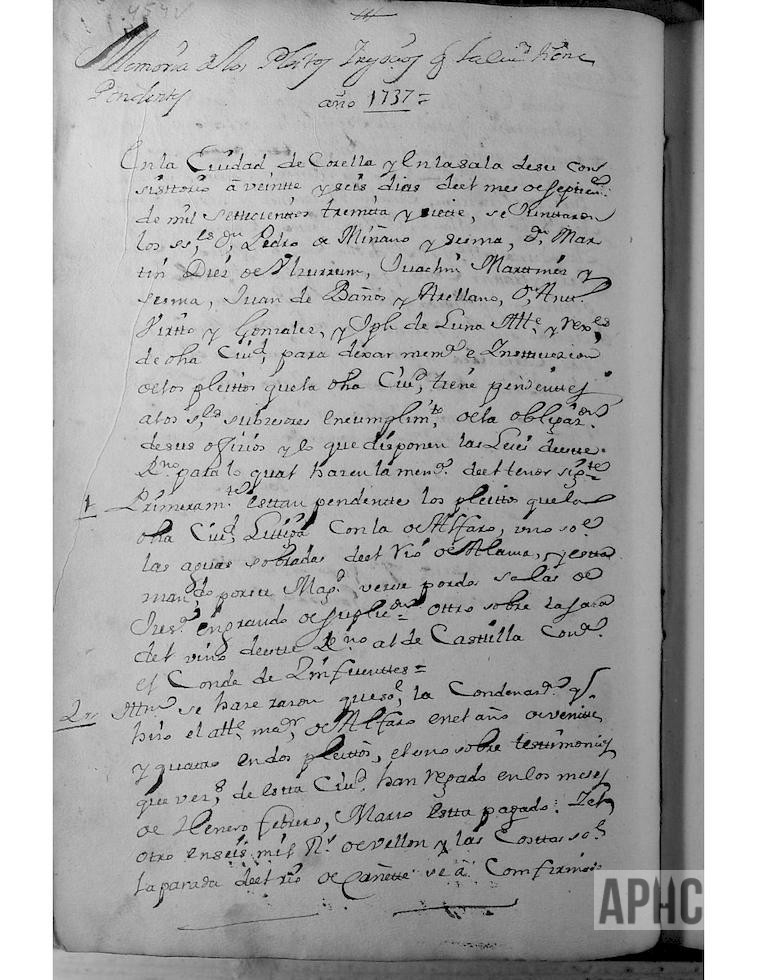 454v
Memoria de los Pleytos y espeçies q̃ la ciu.d tiene
Pendientes año 1737=
En la Ciudad de Corella y en la sala de su con
sisttorio â veintte y seis dias deel mes de sepctiem.e
de mil settecientos treintta y siette, se Junttaron
los ss.res d.n Pedro de Miñano y sesma, d.n Mar
tin Diez de Vlzurrum, Juachin Martinez y
sesma, Juan de Baños y Arellano, d.n Antt.o
Virtto y Gonzalez, y Jph de Luna Alld.e y Rex.es
de dha Ciu.d para dexar mem.a e Insttruccion
de los pleittos que la dha Ciu.d tiene pendienttes
a los s.res subcesores en cumplim.to de la obligaz.on
de sus ofizios y lo que disponen las Leies deeste
R.no para lo qual hazen la mem.a deel tenor sig.te
1 Primeram.te esttan pendientte los pleittos que la
dha Ciu.d Littiga Con la de Alfaro, vno so.e
las aguas sobradas deel Rio de Alama, y estta
mandado por su Mag.d verse por dos salas de
Jus.a en grando de suplic.on = ottro sobre la saca
del vino deeste R.no al de Casttilla Con.a
el Conde de Zinfuenttes=
2. Attn se haze razon que so.e la Condenaz.n q̃
hizo el all.e ma.or de Alfaro en el año de veintte
y quattro en dos pleittos, el vno sobre testtimonios
que vez.s de estta Ciu.d han regado en los meses
de Henero febrero, Marzo estta pagado: Yel
otro en seis mil R.s de vellon y las Costtas so.e
la parada deel rio de Cañette ve â Comfirmado
APHC